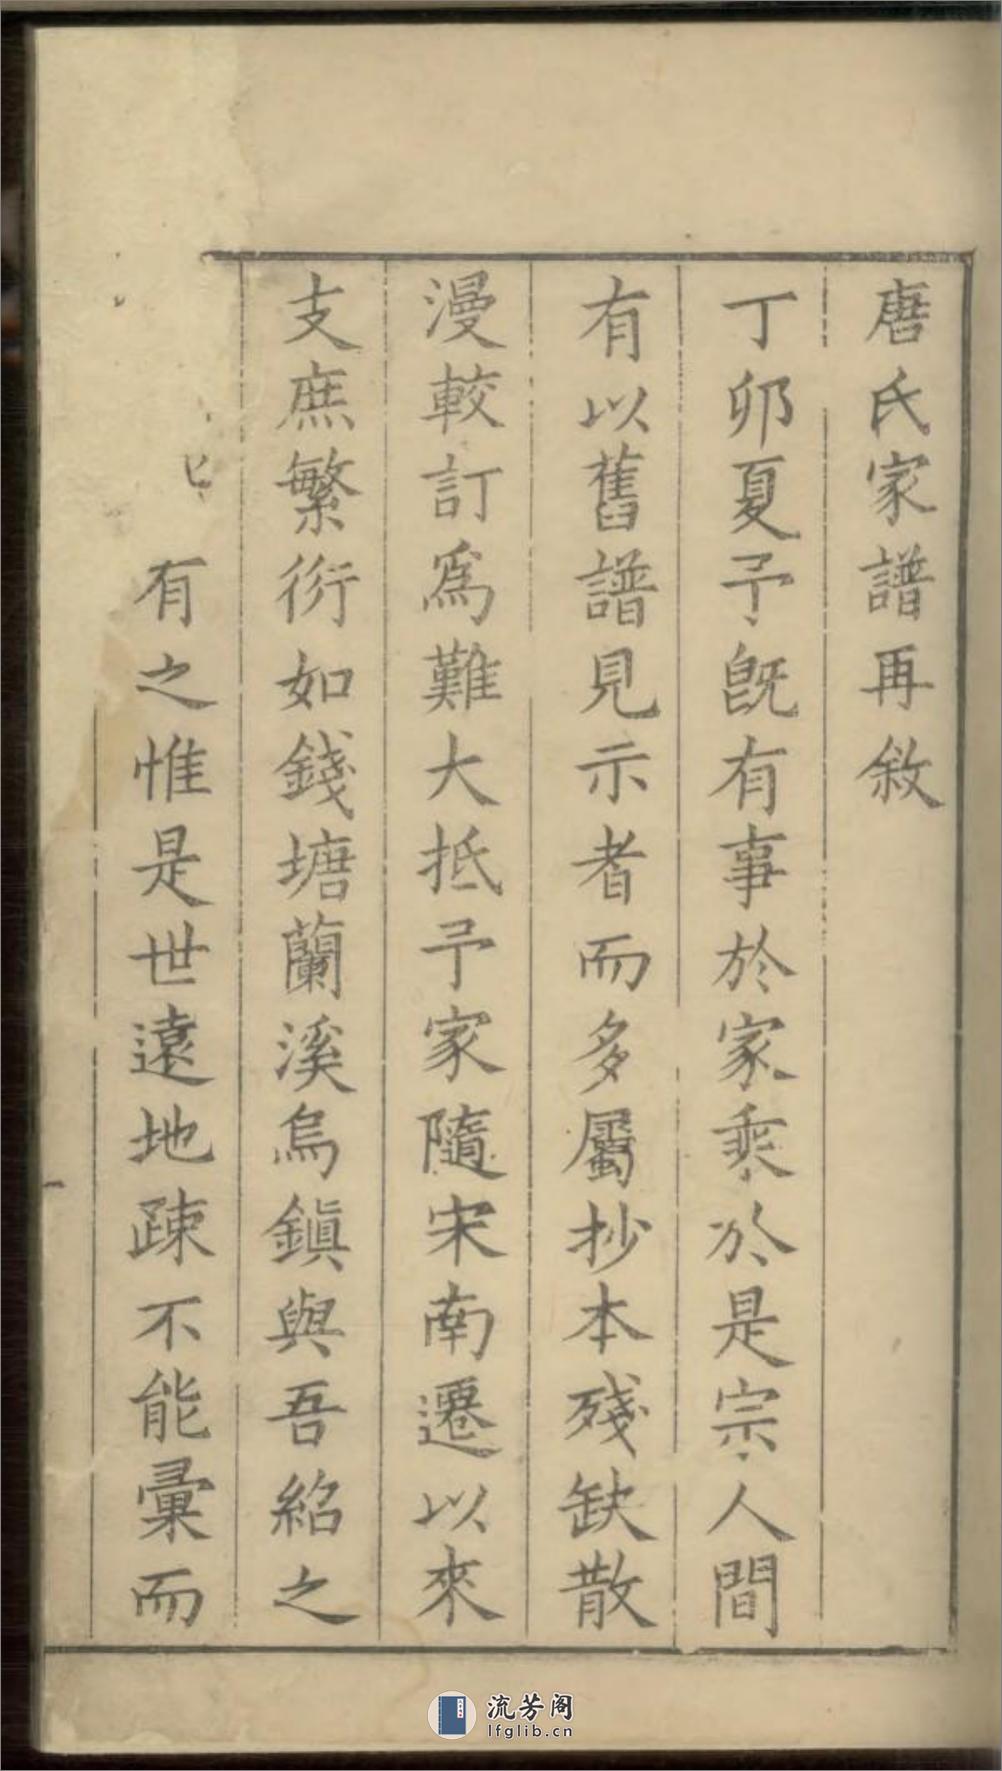 唐氏家譜再敘
丁卯夏予旣有事於家乘於是宗人間
有以舊譜見示者而多屬抄本殘缺散
漫較訂為難大抵予家隨宋南遷以來
支庶繁衍如錢塘蘭溪烏鎮與吾紹之
有之惟是世遠地踈不能彙而
流芳阁
lfglib.cn